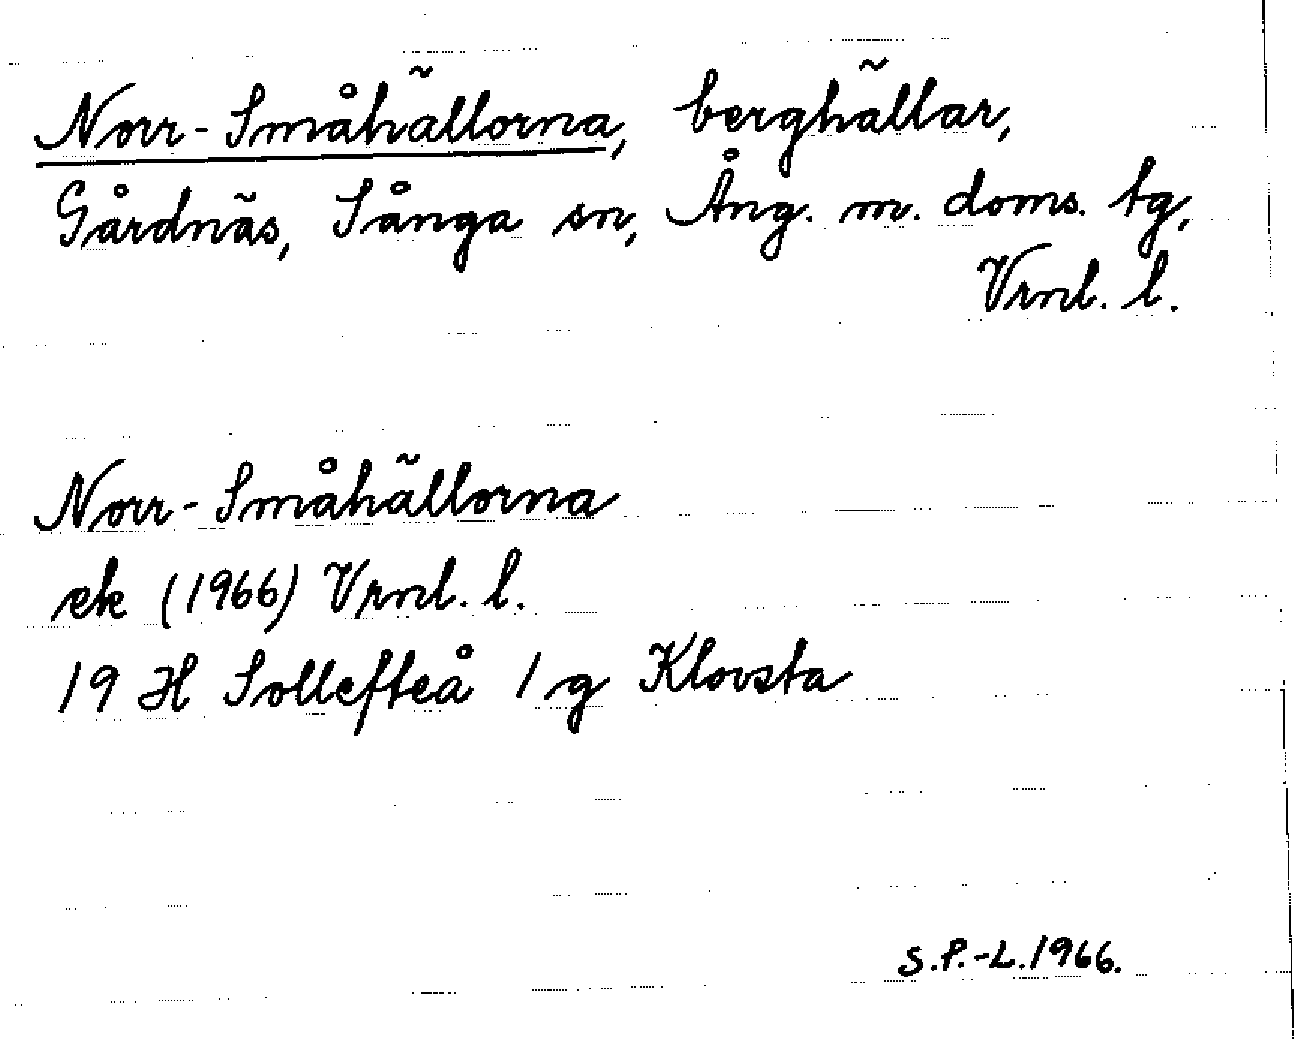 Norr-Småhällorna, berghällar,
Gårdnäs, Sånga sn, Ång. m. doms. tg,
Vrnl. l.
Norr-Småhällorna
ek (1966) Vrnl. l.
19 H Sollefteå 1 g Klovsta
S.P.-L. 1966.